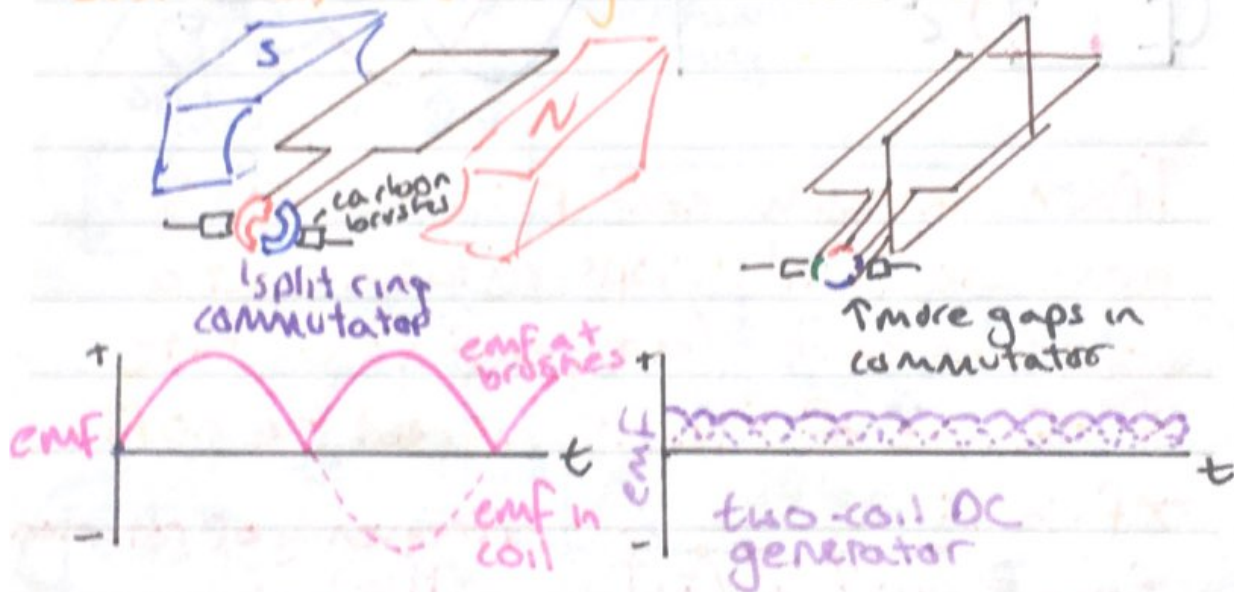 S
N
carbon
brushes
split ring
commutator
↑more gaps in
commutator
+
emf at
brushes
emf
t
emf in
coil
-
+
emf
t
two-coil DC
generator
-